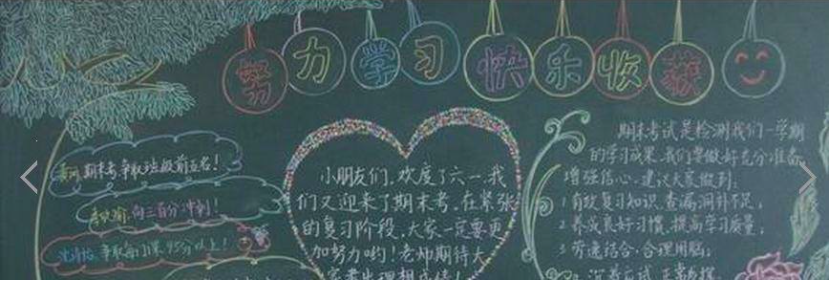 努力学习快乐收获
期末考争取班级前五名!
向三百分冲刺!
争取每门课95分以上!
小朋友们,欢度了六一,我
们又迎来了期末考,在紧张
的复习阶段,大家一定要更
加努力哟!老师期待大
期末考试是检测我们一学期
的学习成果,我们要做好充分准备,
增强信心,建议大家做到:
1 有效复习知识,查漏补不足;
2 养成良好习惯,提高学习质量;
3 劳逸结合,合理用脑;